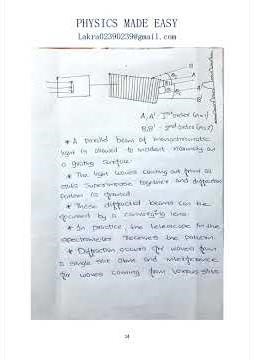 PHYSICS MADE EASY
Lakra02390239@gmail.com
B
A
A'
B'
A, A' - Ist order (n=1)
B, B' - 2nd order (n=2)
* A parallel beam of monochromatic
light is allowed to incident normally on
a grating surface.
* The light waves coming out from all
slits superimpose together and diffraction
pattern is formed
* These diffracted beams can be
focused by a converging lens.
* In practice the telescope in the
spectrometer receives the pattern.
* Diffraction occurs for waves from
a single slit alone and interference
for waves coming from various slits.
24